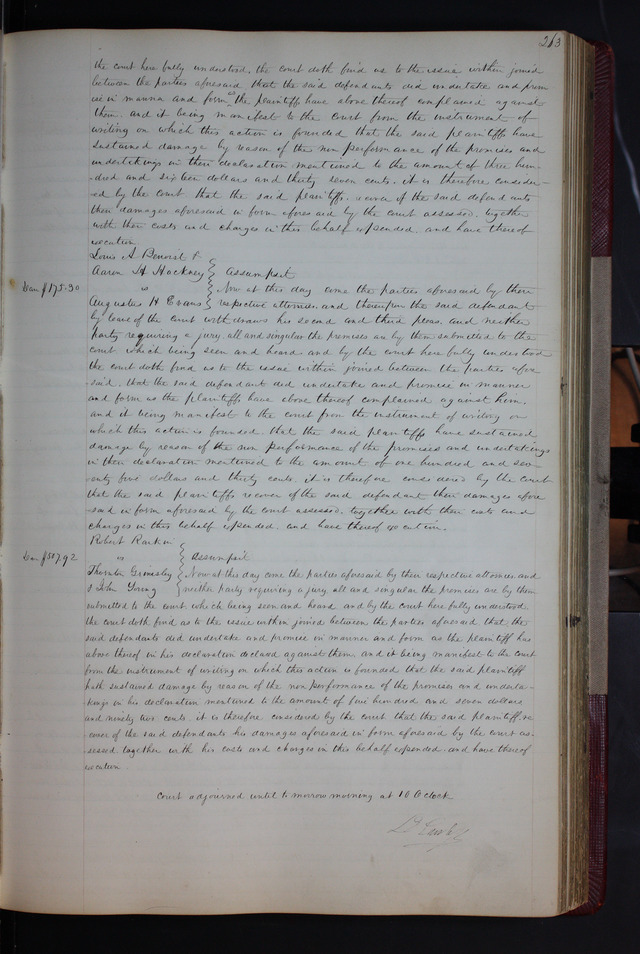 263
the court here fully understood, the court doth find as to the issue within joined
between the parties aforesaid that the said defendants did undertake and prom
ise in manner and form as the plaintiffs have above thereof complained against
them, and it being manifest to the court from the instrument of
writing on which this action is founded that the said plaintiffs have
sustained damage by reason of the non performance of the promises and
undertakings in their declaration mentioned to the amount of three hun-
dred and sixteen dollars and thirty seven cents, it is therefore consider-
-ed by the court that the said plaintiffs recover of the said defendants
their damages aforesaid in form aforesaid by the court assessed, together
with their costs and charges in this behalf expended, and have thereof
execution
Louis A Benoist &
Aaron H Hackney Assumpsit
Dam $175.30 vs Now at this day come the parties aforesaid by their
Augustus H Evans respective attornies and thereupon the said defendant
by leave of the court withdraws his second and third pleas, and neither
party requiring a jury, all and singular the premises are by them submitted to the
court, which being seen and heard and by the court here fully understood
the court doth find as to the issue within joined between the parties afore
said, that the said defendant did undertake and promise in manner
and form as the plaintiffs have above thereof complained against him,
and it being manifest to the court from the instrument of writing on
which this action is founded, that the said plaintiffs have sustained
damage by reason of the non performance of the promises and undertakings
in their declaration mentioned to the amount of one hundred and sev-
enty five dollars and thirty cents, it is therefore considered by the court
that the said plaintiffs recover of the said defendant their damages afore
said in form aforesaid by the court assessed, together with their costs and
charges in this behalf expended, and have thereof execution.
Robert Rankin
Dam $507.92 vs Assumpsit
Thornton Grimsley Now at this day come the parties aforesaid by their respective attornies and
& John Young neither party requiring a jury all and singular the premises are by them
submitted to the court which being seen and heard and by the court here fully understood.
the court doth find as to the issue within joined between the parties aforesaid that the
said defendants did undertake and promise in manner and form as the plaintiff has
above thereof in his declaration declared against them, and it being manifest to the court
from the instrument of writing on which this action is founded that the said plaintiff
hath sustained damage by reason of the non performance of the promises and underta-
kings in his declaration mentioned to the amount of five hundred and seven dollars
and ninety two cents, it is therefore considered by the court that the said plaintiff re
cover of the said defendants his damages aforesaid in form aforesaid by the court as-
sessed together with his costs and charges in this behalf expended, and have thereof
execution
Court adjourned until to morrow morning at 10 O clock